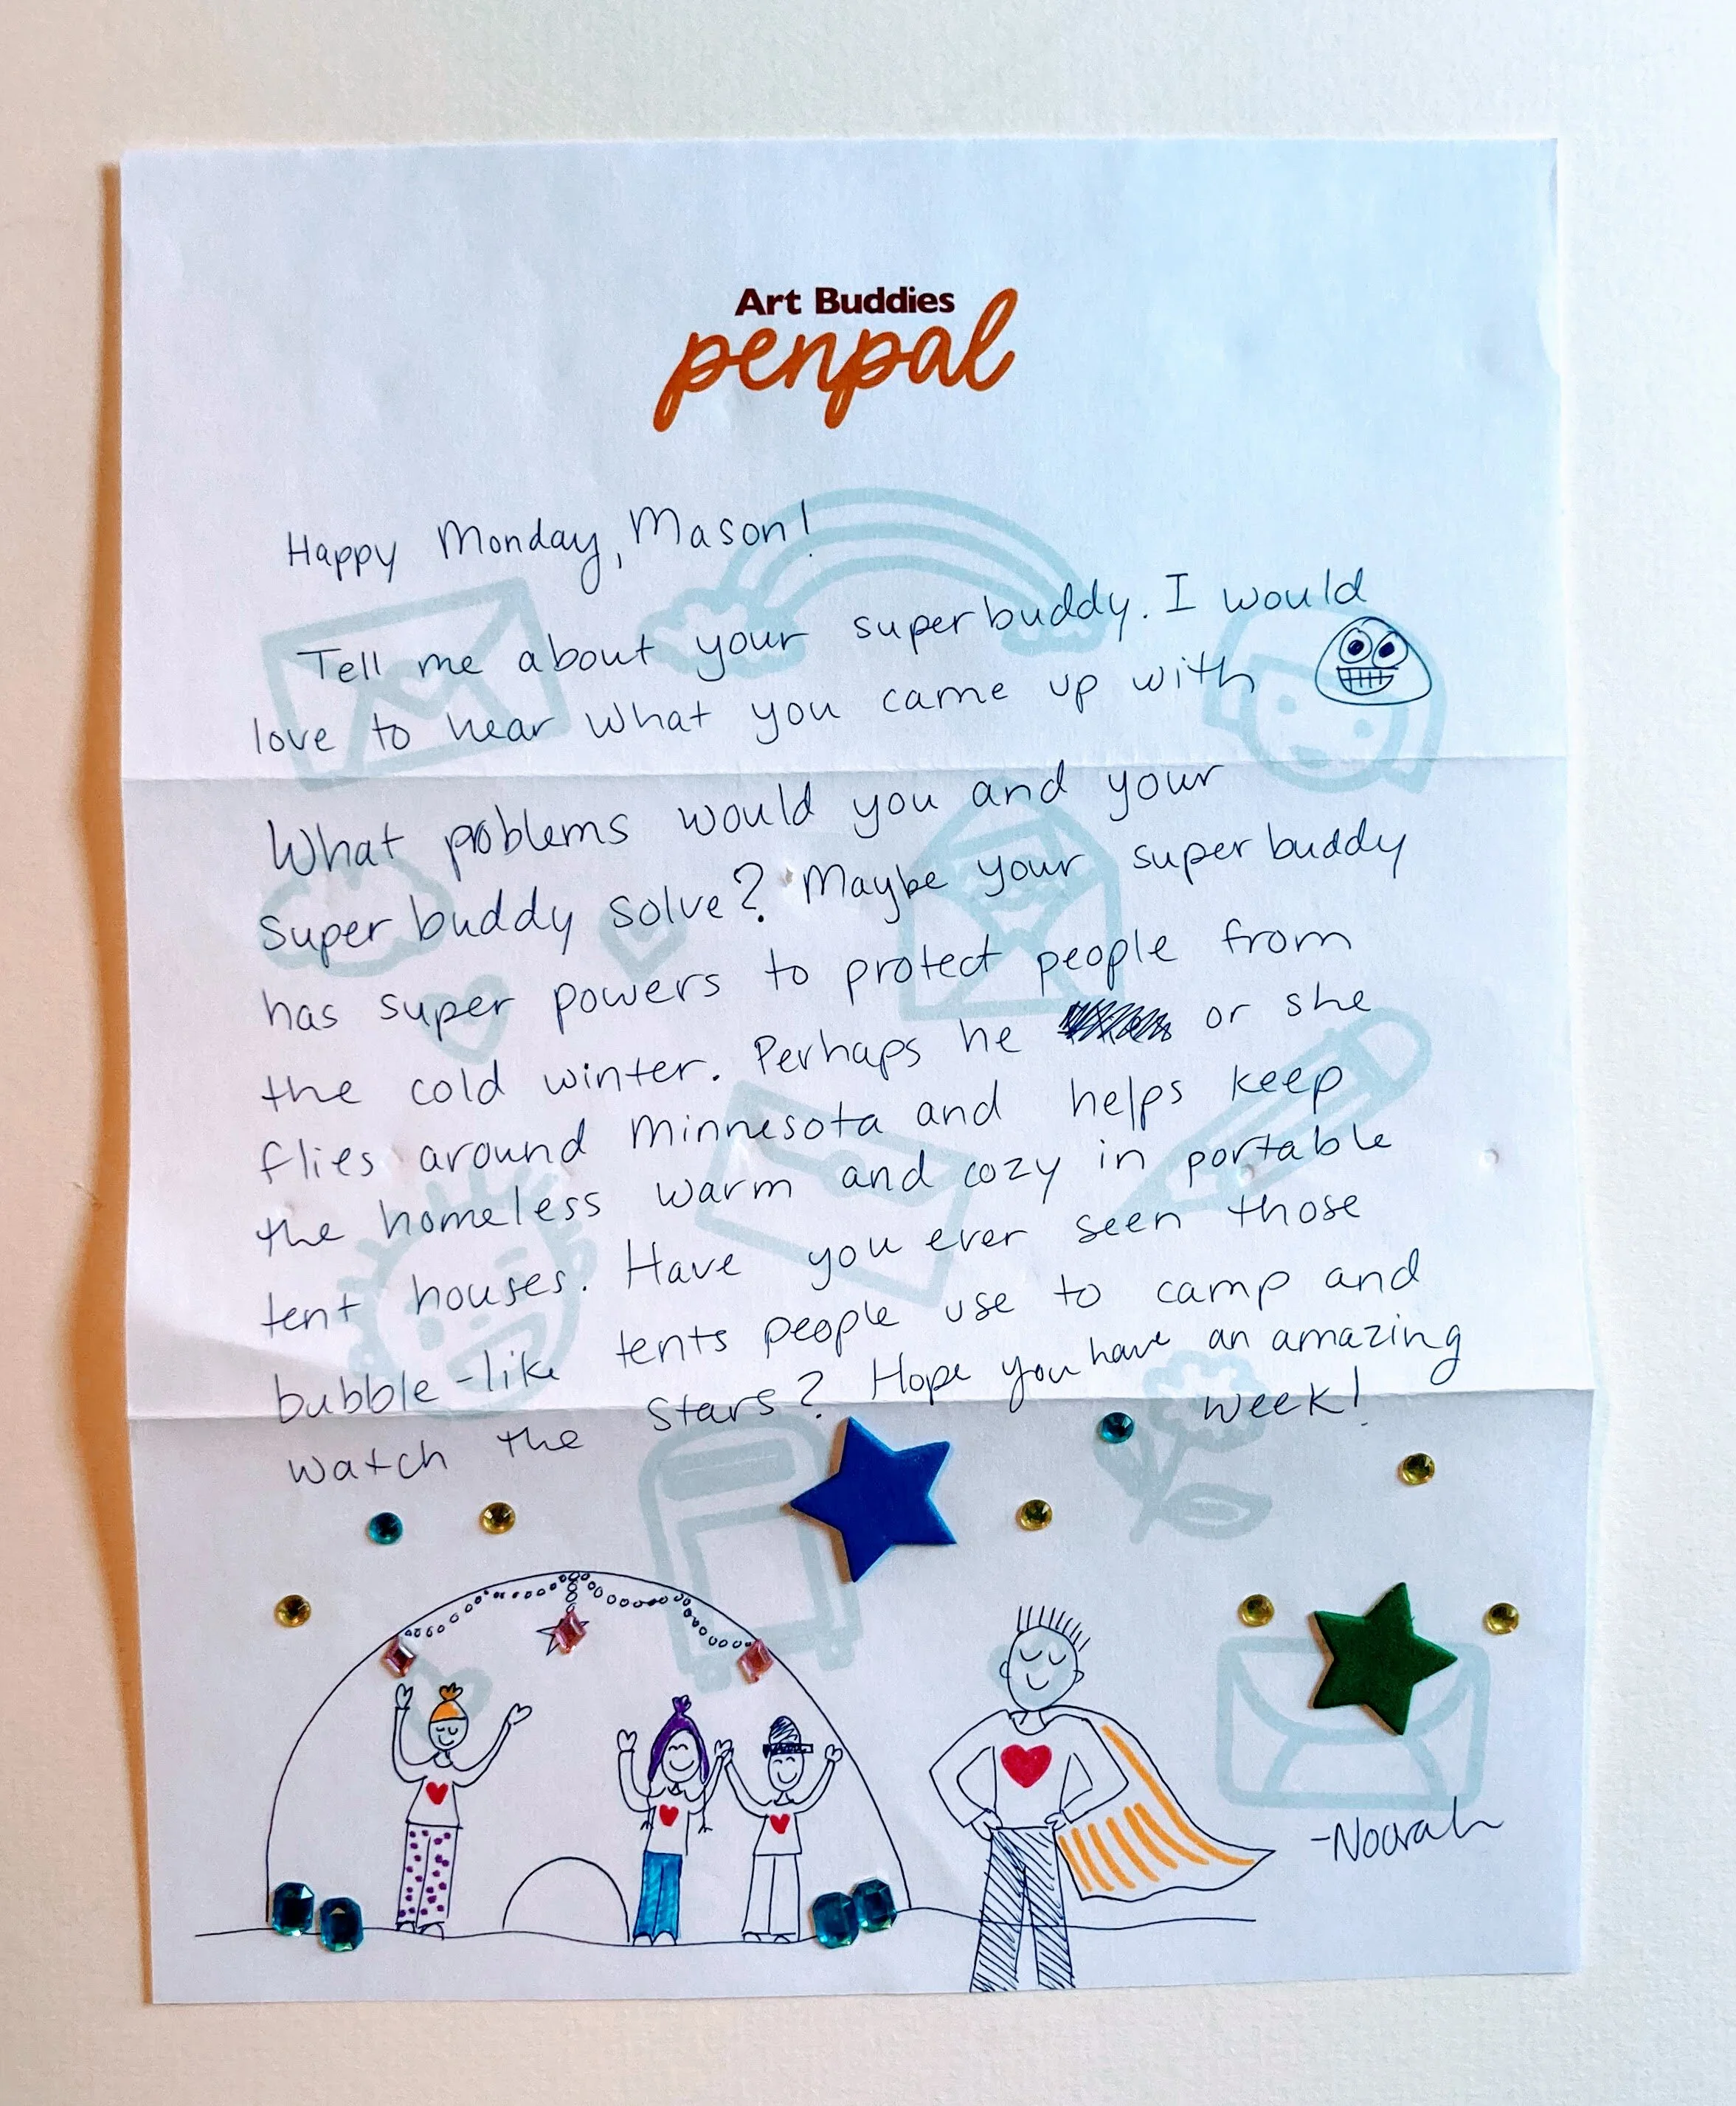 Art Buddies
penpal
Happy Monday, Mason!
Tell me about your superbuddy. I would
love to hear what you came up with
What problems would you and your
super buddy solve? Maybe your super buddy
has super powers to protect people from
the cold winter. Perhaps he or she
flies around Minnesota and helps keep
the homeless warm and cozy in portable
tent houses. Have you ever seen those
bubble-like tents people use to camp and
watch the stars? Hope you have an amazing
week!
-Noorah